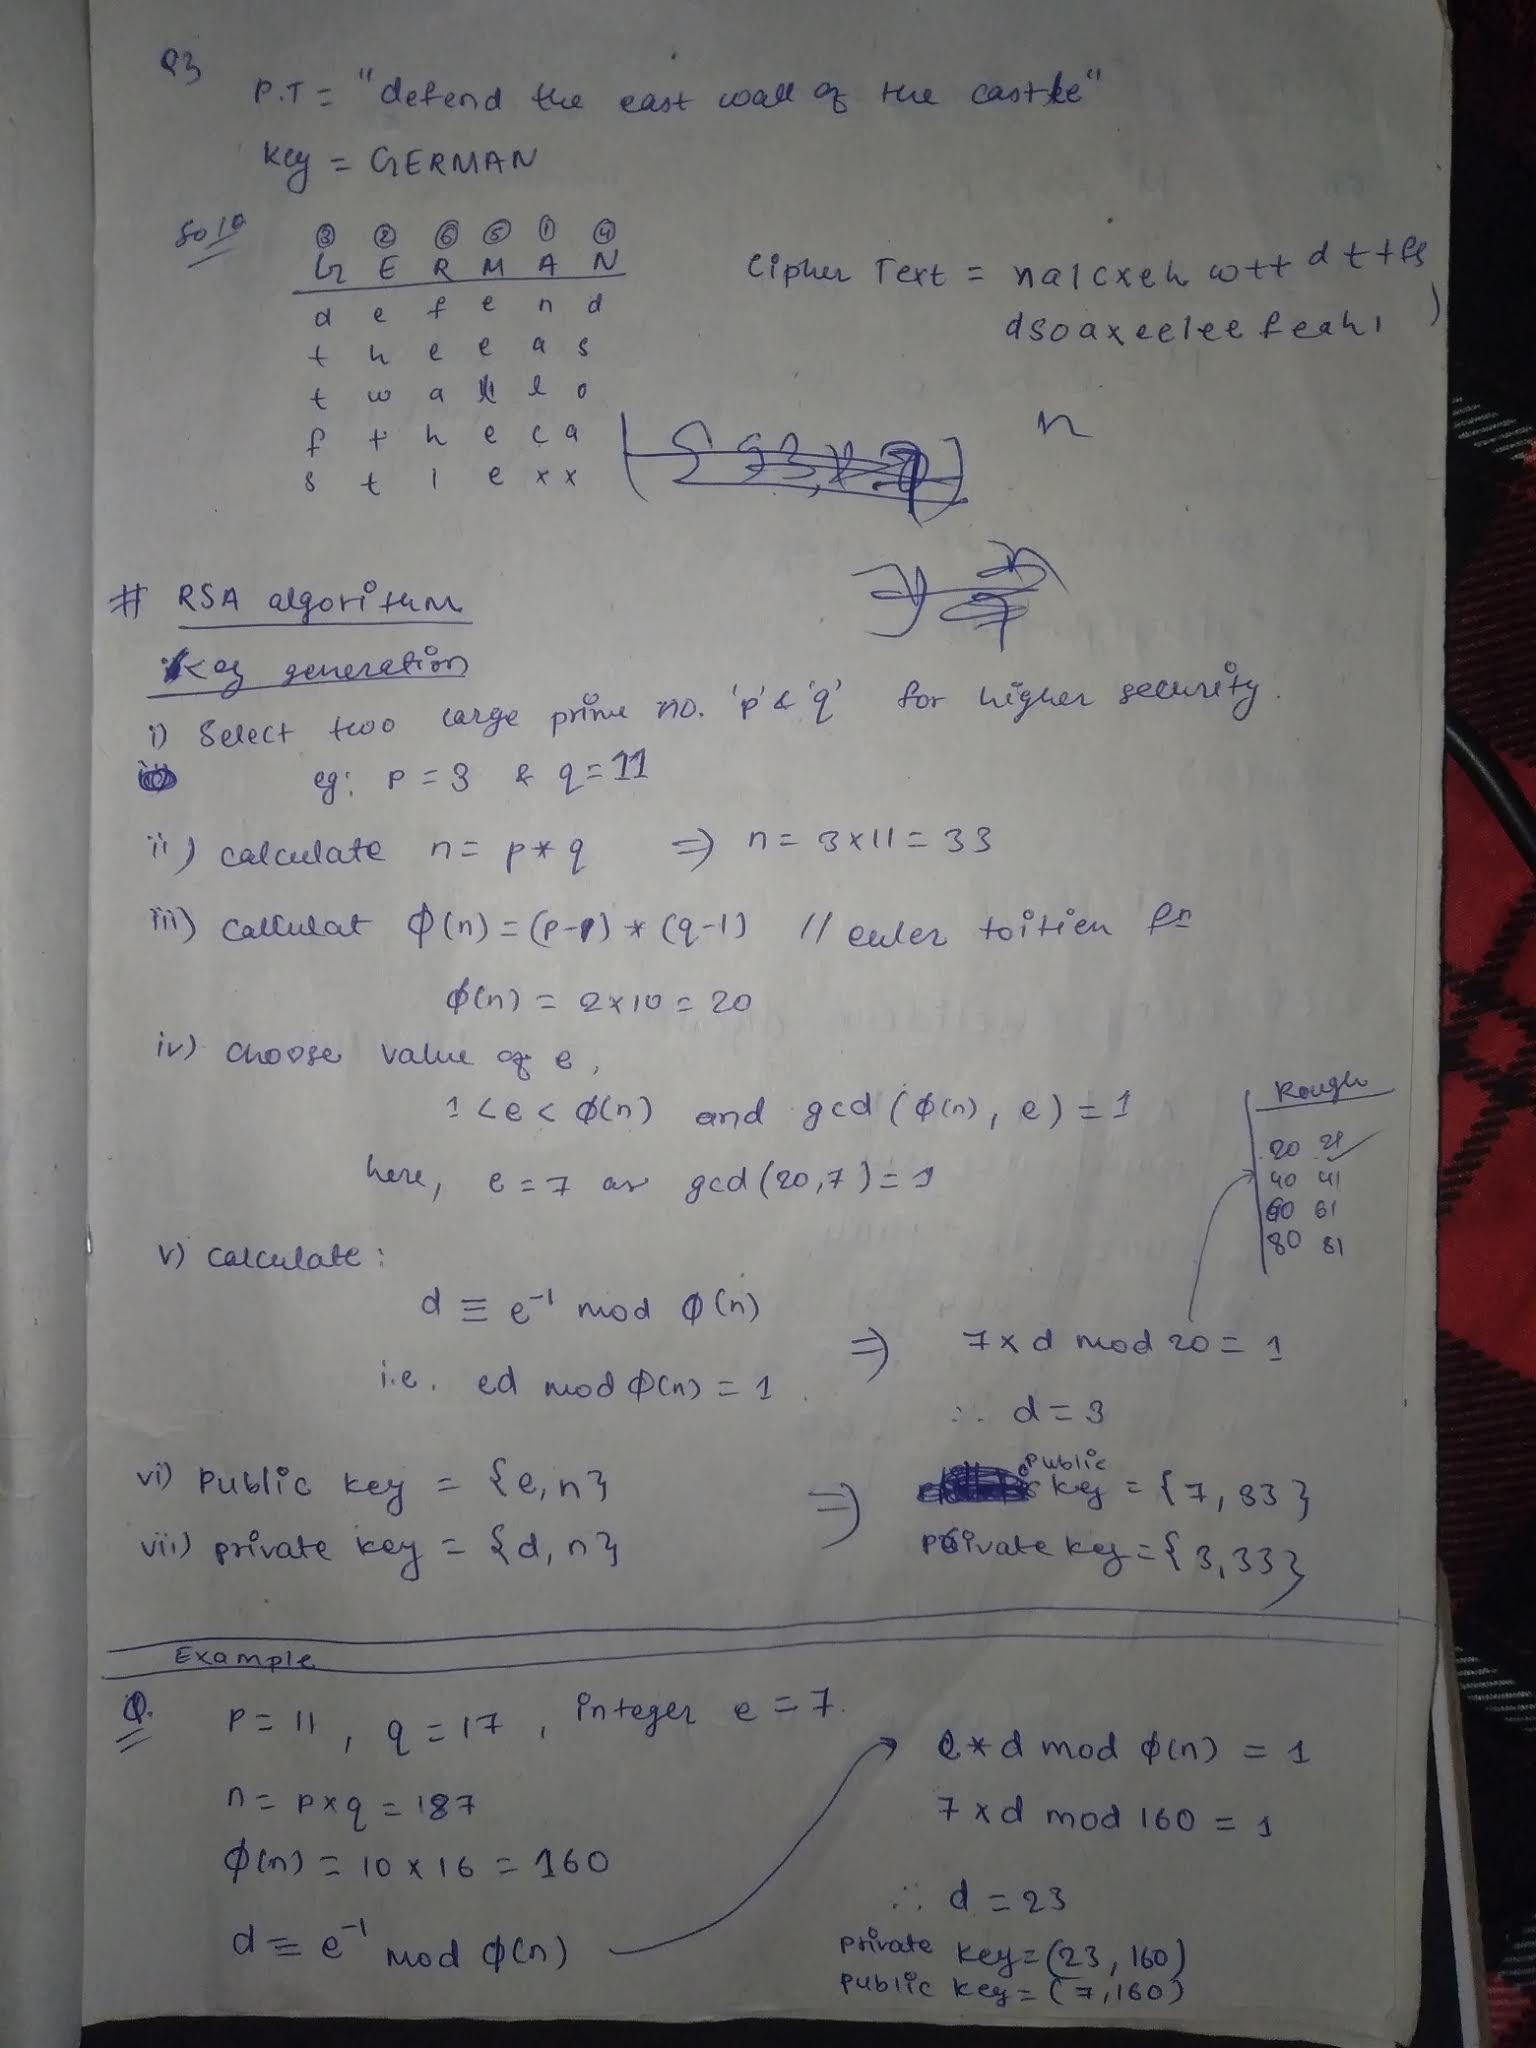 Q3
P.T = "defend the east wall of the castle"
Key = GERMAN
Soln
③ ② ⑥ ⑤ ① ④
G E R M A N
d e f e n d
t h e e a s
t w a l l o
f t h e c a
s t l e x x
Cipher Text = nalcxeh wtt d t t fs
dsoaxeelee feahl
n
# RSA algorithm
Key generation
i) Select two large prime no. 'p' & 'q' for higher security.
eg: p = 3 & q = 11
ii) calculate n = p * q ⇒ n = 3 x 11 = 33
iii) calculat ϕ(n) = (p-1) * (q-1) // euler toitien fn
ϕ(n) = 2 x 10 = 20
iv) choose value of e,
1 < e < ϕ(n) and gcd (ϕ(n), e) = 1
here, e = 7 as gcd (20,7) = 1
Rough
20 21 ✓
40 41
60 61
80 81
v) calculate :
d ≡ e⁻¹ mod ϕ(n)
i.e. ed mod ϕ(n) = 1
⇒ 7 x d mod 20 = 1
∴ d = 3
vi) Public key = {e, n}
vii) private key = {d, n}
⇒ public key = {7, 33}
private key = {3, 33}
Example
Q. P = 11, q = 17, integer e = 7.
n = p x q = 187
ϕ(n) = 10 x 16 = 160
d ≡ e⁻¹ mod ϕ(n)
e * d mod ϕ(n) = 1
7 x d mod 160 = 1
∴ d = 23
private key = (23, 160)
public key = (7, 160)